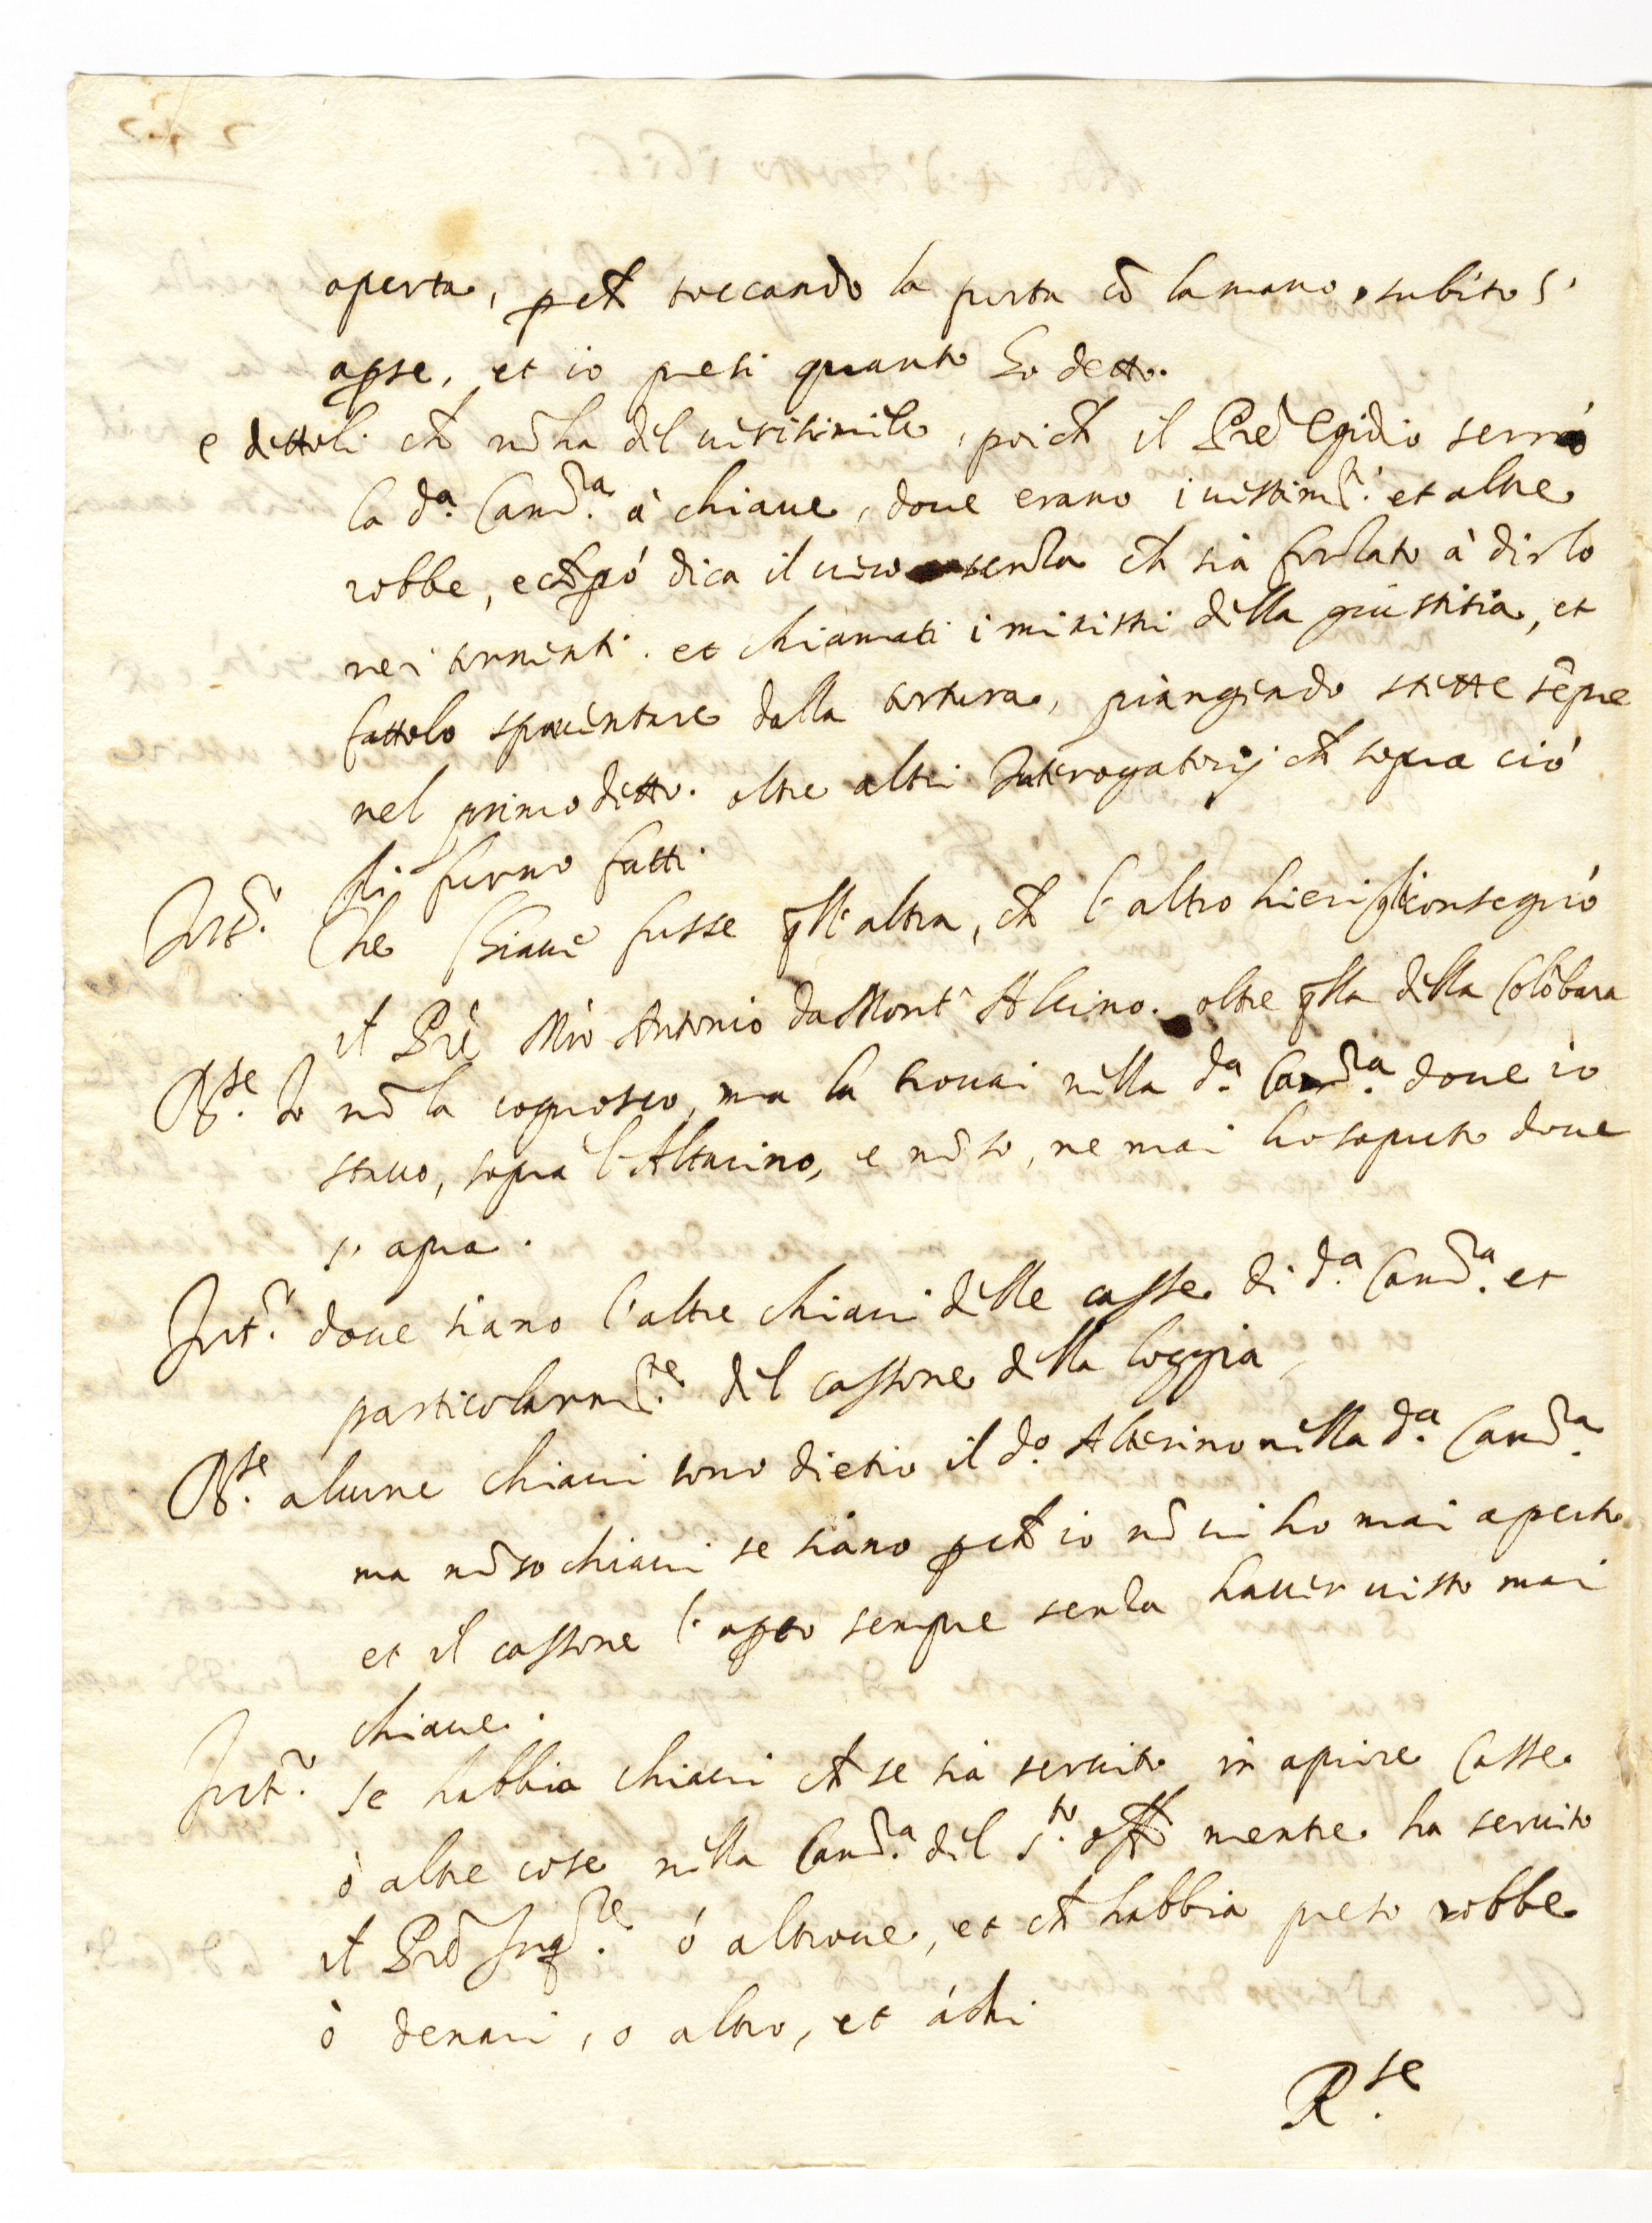 aperta, pche toccando la porta cõ la mano, subito s'
aperse, et io presi quanto ho detto.
e dettoli che nõ ha del uerisimile, poiche il Prè Egidio serrò
la dª. Camª. à chiaue, doue erano i uestimti. et altre
robbe, e che però dica il uero senza che sia forzato à dirlo
nei tormenti. et chiamati i ministri della giustitia, et
fattolo spauentare dalla tortura, piangendo stette sẽpre
nel primo detto. oltre altri Interogatorij che sopra ciò
li furno fatti.
Intº. Che Chiaue fusse qlla altra, che l'altro hieri gli consegnò
il Prè Mrò Antonio da Mont' Alcino. oltre qlla della Colõbara
Rse. Io nõ la cognosco, ma la trouai nella dª. Camª. doue io
stauo, sopra l'Altarino, e nõ so, ne mai ho saputo doue
s'apra.
Intº. doue siano l'altre chiaui delle casse di dª. Camª. et
particolarmte. del cassone della loggia,
Rse. alcune chiaui sono dietro il dº. Altarino nella dª. Camª.
ma nõ so chiaui se siano pche io nõ ui ho mai aperto
et il cassone l'apro sempre senza hauer uisto mai
chiaue.
Intº. se habbia chiaui che se sia seruito in aprire Casse
ò altre cose nella Camª. del s.to offo mente ha seruito
il Prè Inqre. ò altroue, et che habbia preso robbe
ò denari, o altro, et à chi
Rse.